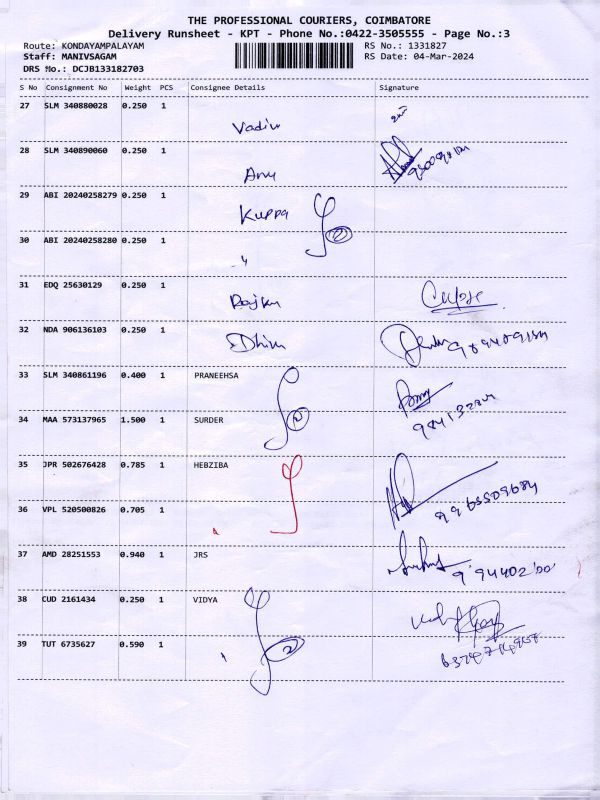 THE PROFESSIONAL COURIERS, COIMBATORE
Delivery Runsheet - KPT - Phone No.:0422-3505555 - Page No.:3
Route: KONDAYAMPALAYAM RS No.: 1331827
Staff: MANIVSAGAM RS Date: 04-Mar-2024
DRS No.: DCJB133182703
S No Consignment No Weight PCS Consignee Details Signature
27 SLM 340880028 0.250 1
Vadiv
28 SLM 340890060 0.250 1
Anu
29 ABI 20240258279 0.250 1
Kuppa
30 ABI 20240258280 0.250 1
31 EDQ 25630129 0.250 1
Rajku
32 NDA 906136103 0.250 1
Dhivu
33 SLM 340861196 0.400 1 PRANEEHSA
34 MAA 573137965 1.500 1 SURDER
35 JPR 502676428 0.785 1 HEBZIBA
9965509684
36 VPL 520500826 0.705 1
37 AMD 28251553 0.940 1 JRS
38 CUD 2161434 0.250 1 VIDYA
39 TUT 6735627 0.590 1